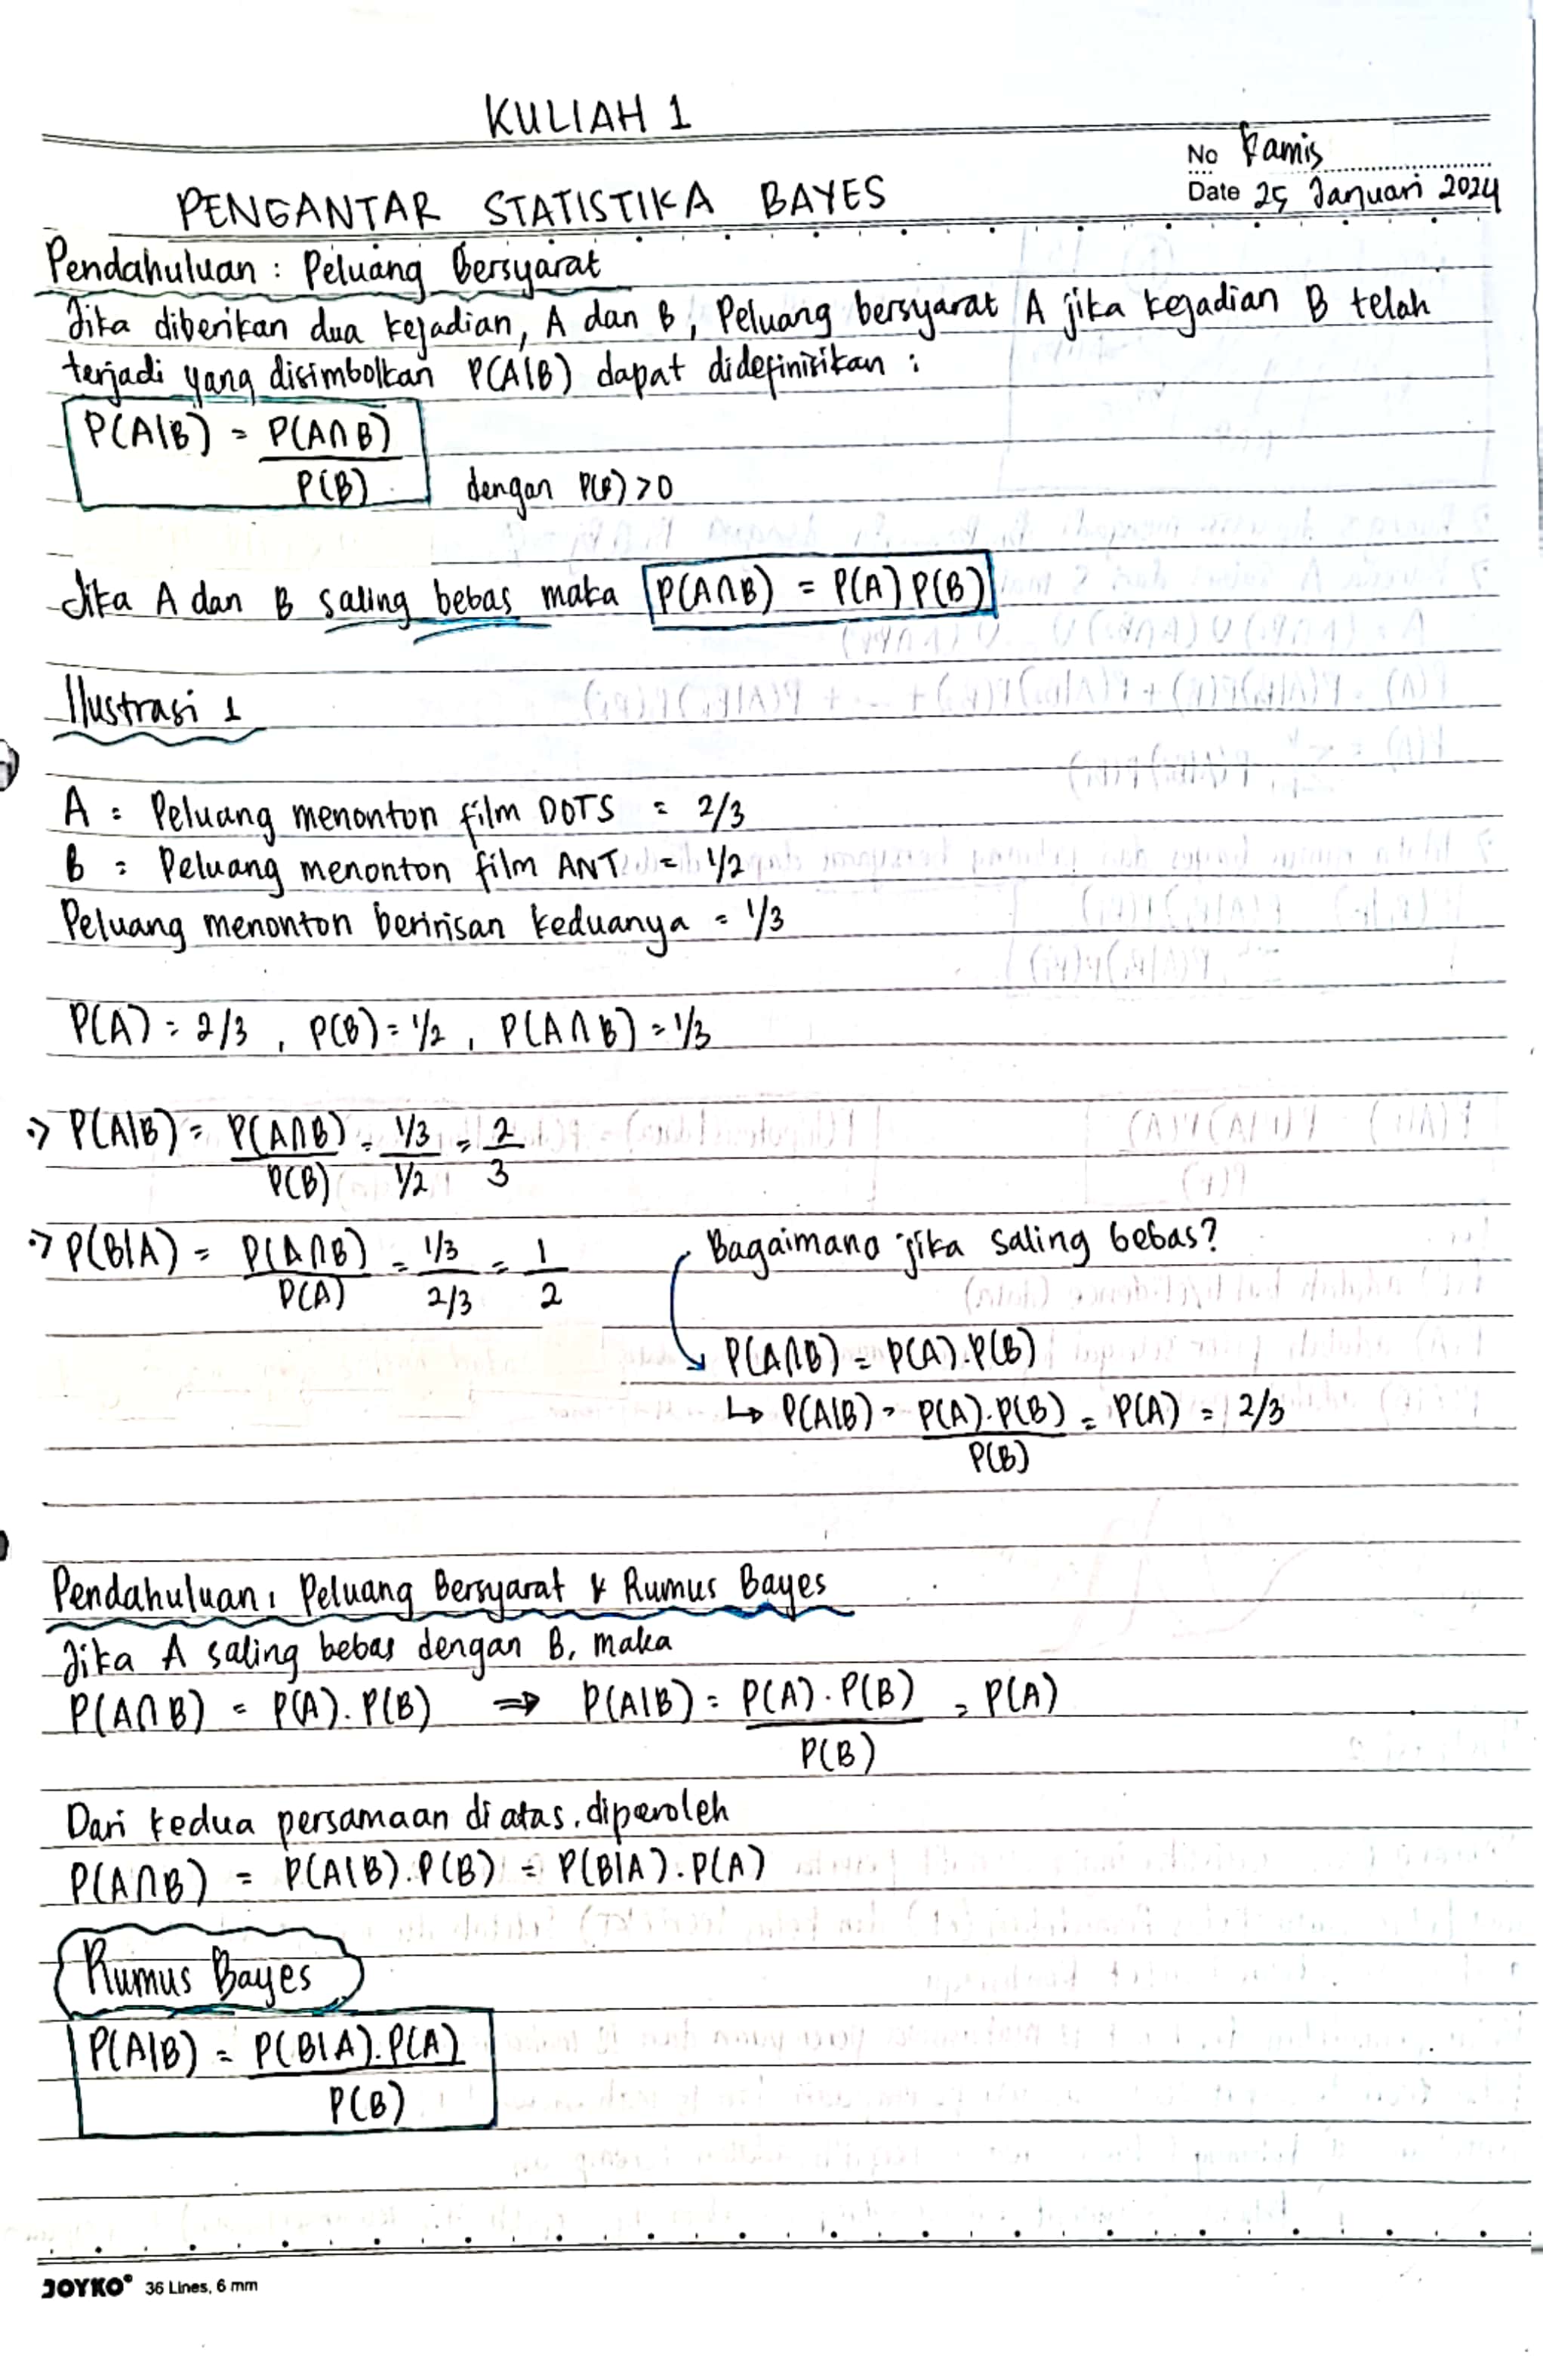 KULIAH 1
No Kamis
Date 25 Januari 2024
PENGANTAR STATISTIKA BAYES
Pendahuluan : Peluang Bersyarat
Jika diberikan dua kejadian, A dan B, Peluang bersyarat A jika kejadian B telah
terjadi yang disimbolkan P(A|B) dapat didefinisikan :
P(A|B) = P(A∩B) / P(B) dengan P(B) > 0
Jika A dan B saling bebas maka P(A∩B) = P(A) P(B)
Ilustrasi 1
A : Peluang menonton film DOTS = 2/3
B : Peluang menonton film ANT = 1/2
Peluang menonton beririsan keduanya = 1/3
P(A) = 2/3 , P(B) = 1/2 , P(A∩B) = 1/3
→ P(A|B) = P(A∩B) / P(B) = 1/3 / 1/2 = 2/3
→ P(B|A) = P(A∩B) / P(A) = 1/3 / 2/3 = 1/2
Bagaimana jika saling bebas?
→ P(A∩B) = P(A).P(B)
↳ P(A|B) = P(A).P(B) / P(B) = P(A) = 2/3
Pendahuluan : Peluang Bersyarat & Rumus Bayes
Jika A saling bebas dengan B, maka
P(A∩B) = P(A).P(B) ⇒ P(A|B) = P(A).P(B) / P(B) = P(A)
Dari kedua persamaan di atas, diperoleh
P(A∩B) = P(A|B).P(B) = P(B|A).P(A)
Rumus Bayes
P(A|B) = P(B|A).P(A) / P(B)
JOYKO® 36 Lines, 6 mm